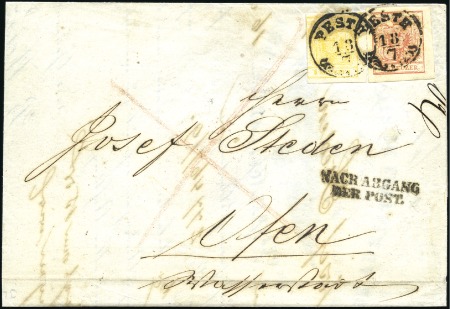 PESTH
18
7
PESTH
18
7
Herrn
Josef Steden
NACH ABGANG
DER POST.
Ofen
Wasserstadt